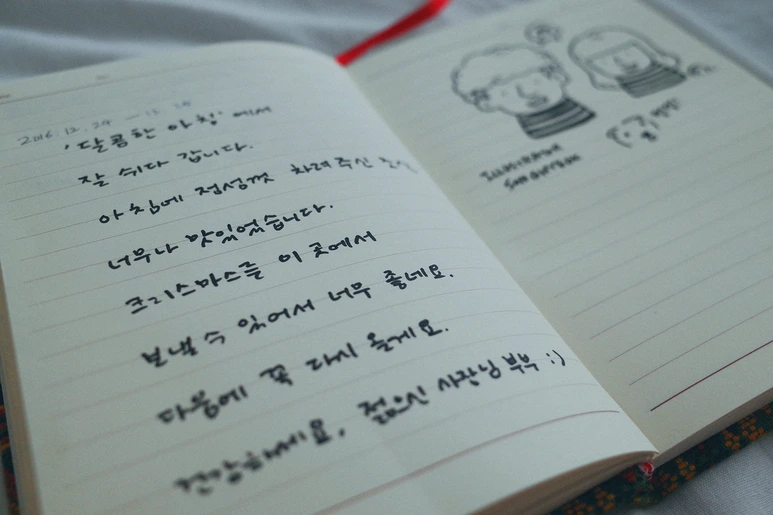 2016.12.24 — 12.25
'달콤한 아침'에서
잘 쉬다 갑니다.
아침에 정성껏 차려주신 조식
너무나 맛있었습니다.
크리스마스를 이 곳에서
보낼 수 있어서 너무 좋네요.
다음에 꼭 다시 올게요.
건강하세요, 젊으신 사장님 부부 :)
ILLUSTRATOR